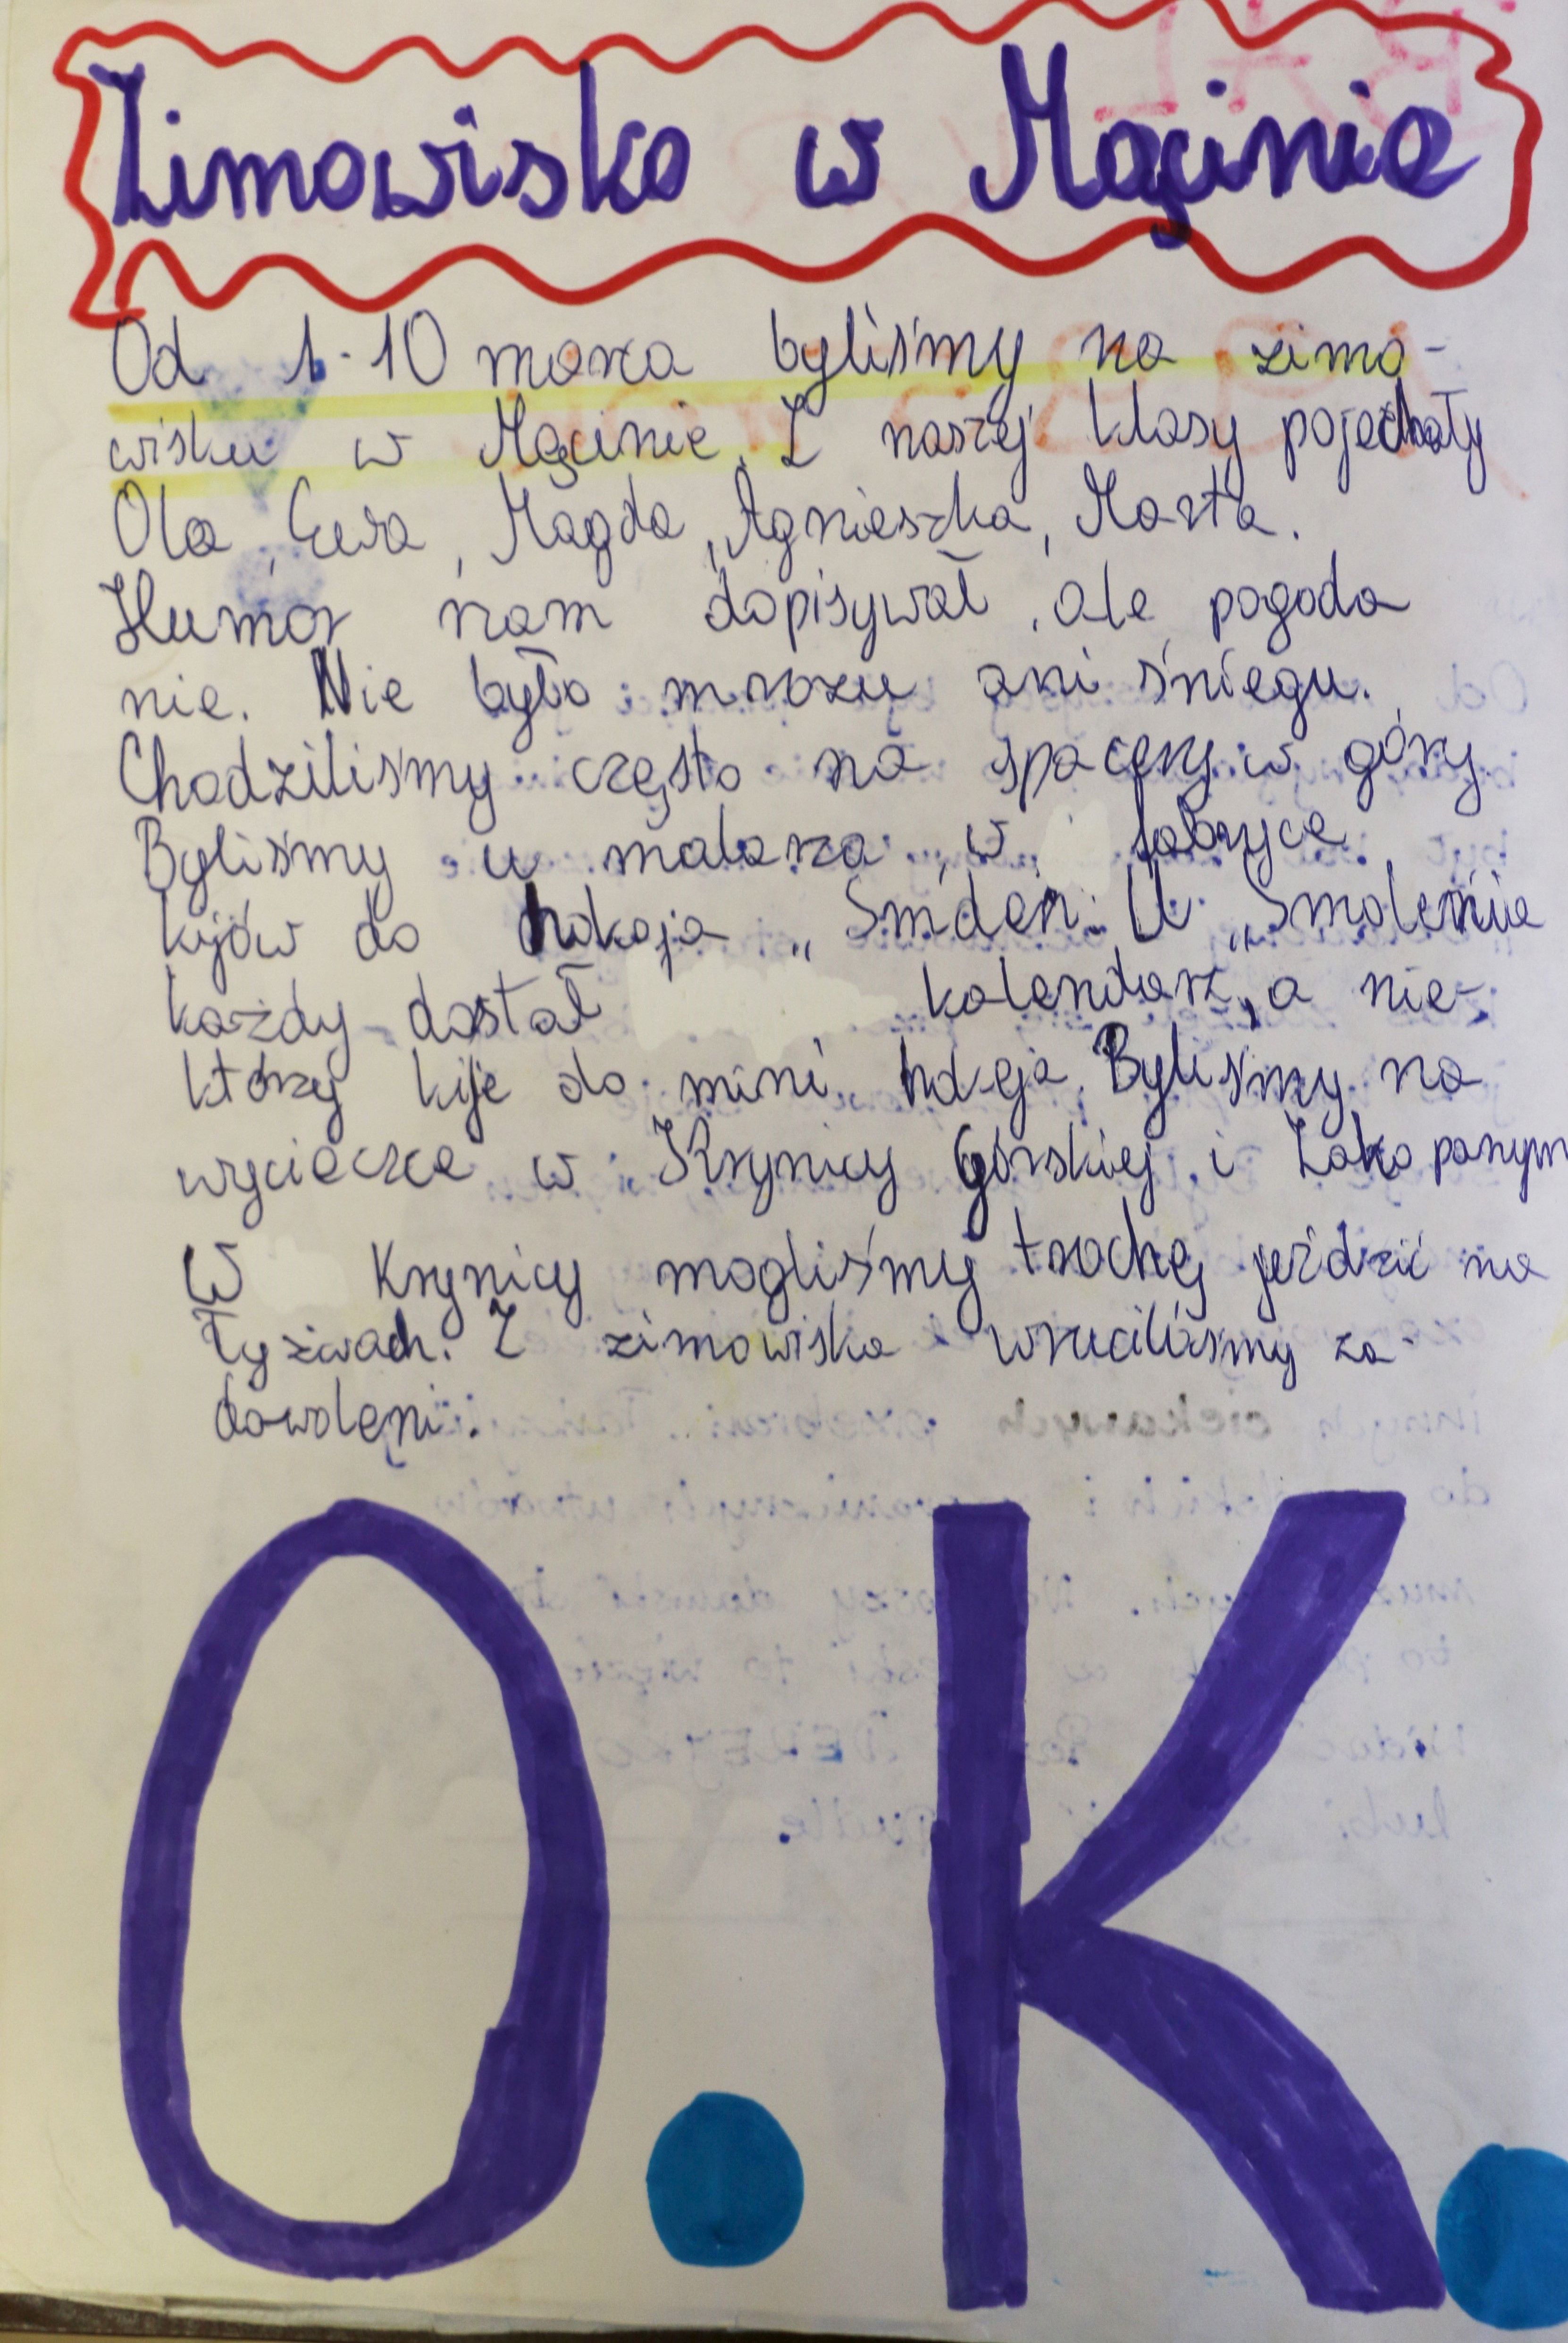 Zimowisko w Męcinie
Od 1-10 marca byliśmy na zimo-
wisku w Męcinie. Z naszej klasy pojechały
Ola, Ewa, Magda, Agnieszka, Marta.
Humor nam dopisywał, ale pogoda
nie. Nie było mrozu ani śniegu.
Chodziliśmy często na spacery w góry
Byliśmy u malarza, w fabryce
kijów do hokeja „Smolen. U „Smolenia
każdy dostał kalendarz, a nie-
którzy kije do mini hokeja. Byliśmy na
wycieczce w Krynicy Górskiej i Zakopanym
W Krynicy mogliśmy trochę jeździć na
łyżwach. Z zimowiska wruciliśmy za-
dowoleni.
O.K.